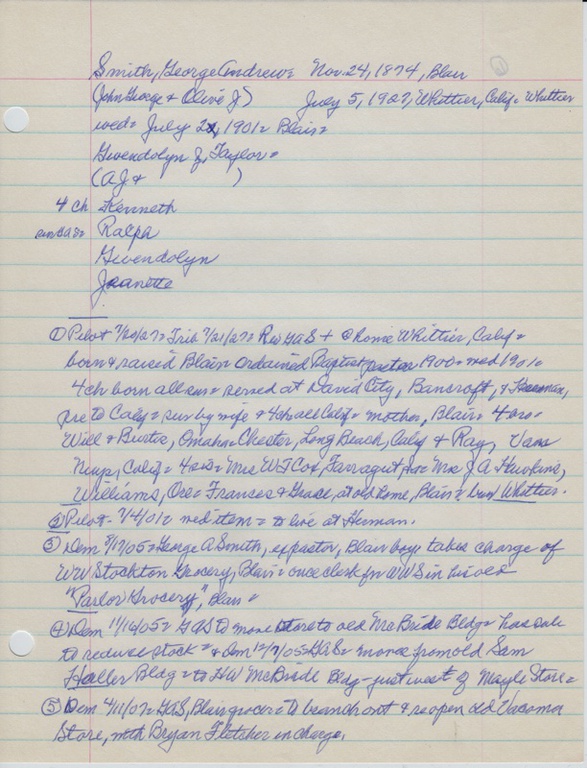 Smith, George Andrew= Nov. 24, 1874, Blair
(John George & Olive J) July 5, 1927, Whittier, Calif= Whittier
wed= July 2, 1901= Blair=
Gwendolyn J. Taylor=
(A J & )
4 ch Kenneth
Ralph
Gwendolyn
Jeanette
① Pilot 7/20/27= Trib 7/21/27= Rev GAS + @ home Whittier, Calif=
born & raised Blair ordained Baptist pastor 1900= wed 1901=
4 ch born all sur= served at David City, Bancroft, &
pre to Calif= sur by wife & 4 ch all Calif= mother, Blair= 4 bro=
Will & Buster, Omaha= Chester, Long Beach, Calif & Ray, Van
Nuys, Calif= 4 sis= Mrs W T Cox, Farragut, Ia= Mrs J A Hawkins,
Williams, Ore= Frances & Grace, at old home, Blair= bur Whittier.
② Pilot- 7/4/01= wed item= to live at Herman.
③ Dem 8/17/05= George A Smith, ex pastor, Blair boy= takes charge of
WW Stockton Grocery, Blair= once clerk for WWS in his old
"Parlor Grocery", Blair=
④ Dem 11/16/05= GAS to move store to old McBride Bldg= has sale
to reduce stock= & Dem 12/7/05= GAS= moved from old Sam
Haller Bldg= to HW McBride Bldg- just west of Mayle Store=
⑤ Dem 4/11/07= GAS, Blair grocer= to branch out & reopen old Vacoma
Store, with Bryan Fletcher in charge.